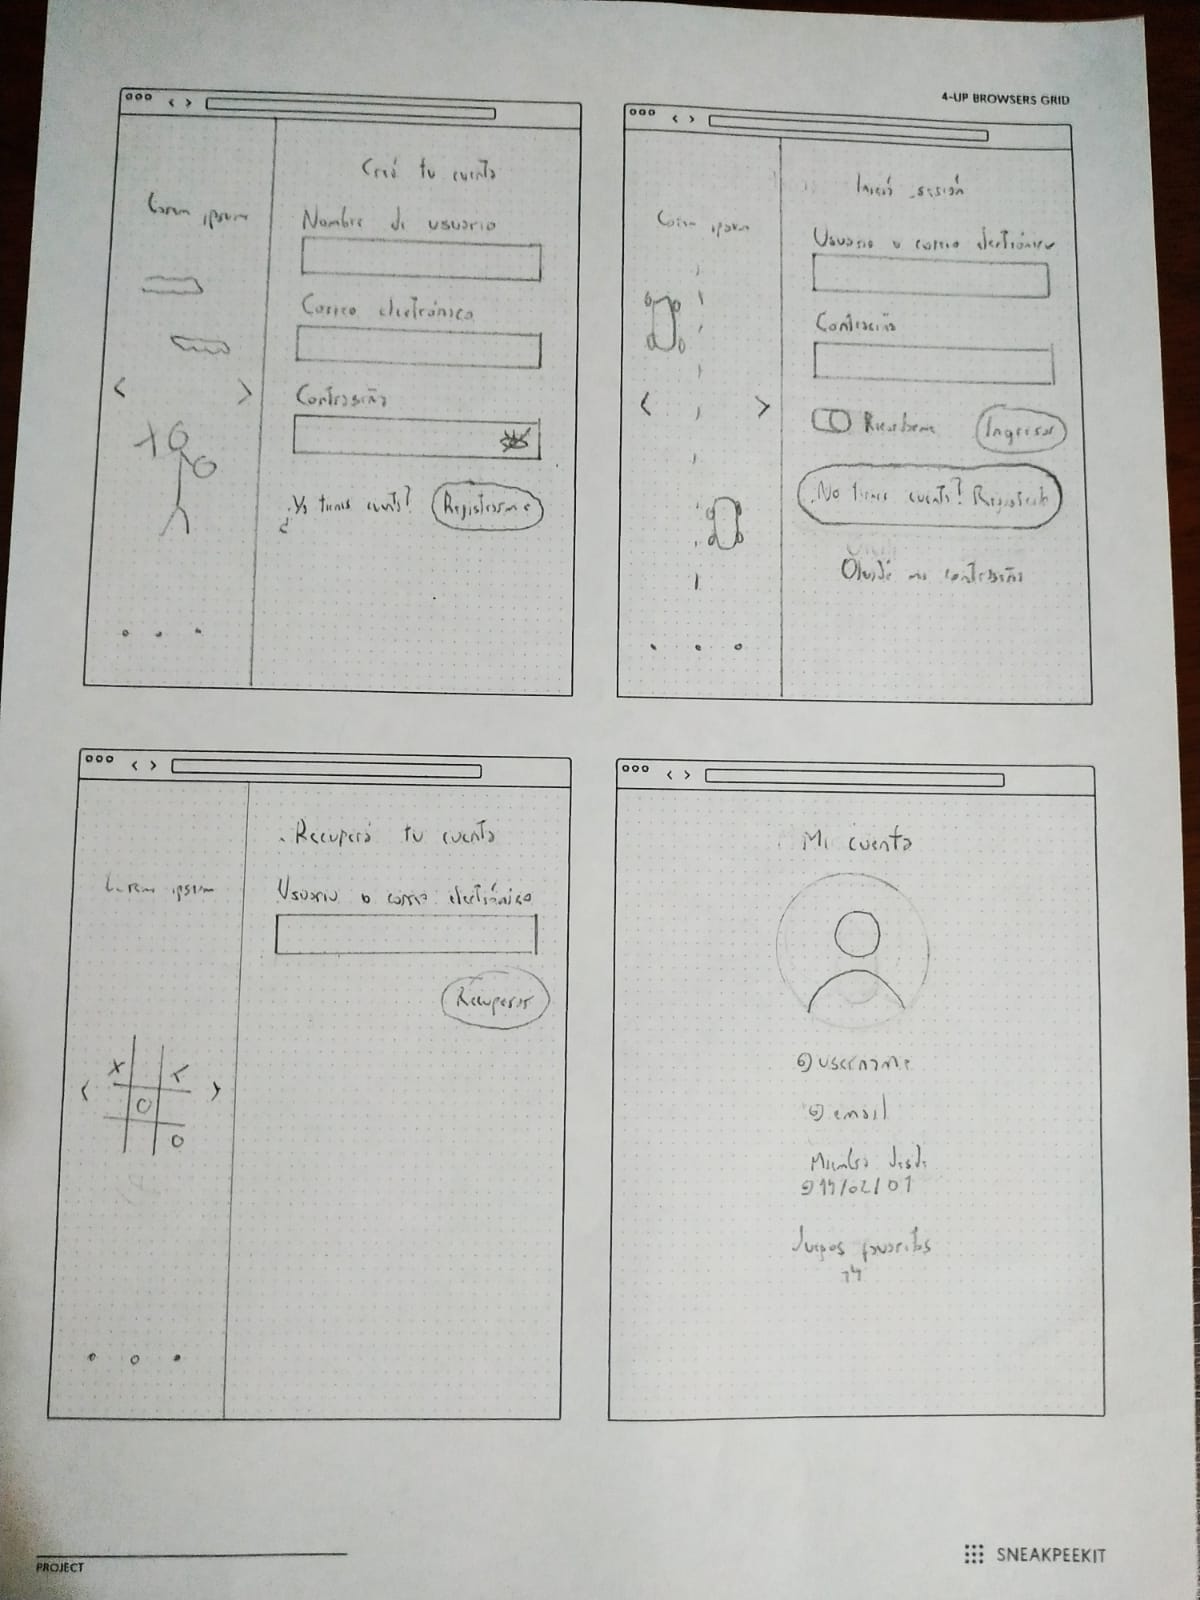 4-UP BROWSERS GRID
Creá tu cuenta
Lorem ipsum
Nombre de usuario
Correo electrónico
Contraseña
¿Ya tienes cuenta? Registrarme
Iniciá sesión
Lorem ipsum
Usuario o correo electrónico
Contraseña
Recordarme Ingresar
¿No tienes cuenta? Registrate
Olvidé mi contraseña
Recuperá tu cuenta
Lorem ipsum
Usuario o correo electrónico
Recuperar
X
O
O
Mi cuenta
@username
@email
Miembro desde
Juegos favoritos
14
PROJECT
SNEAKPEEKIT